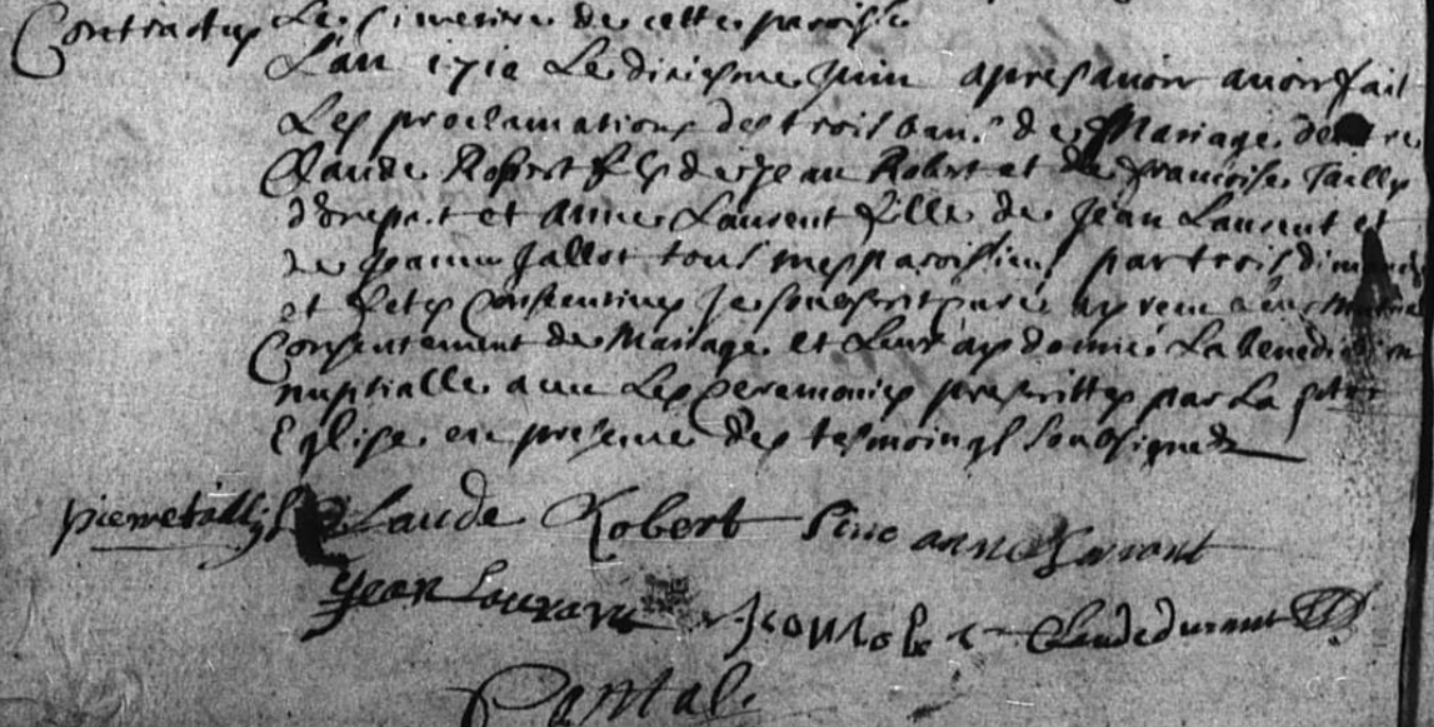 Contractus
Le Simetiere de cette paroisse
L'an 1710 Le dixiesme Juin apres avoir avoir fait
Les proclamations des trois bans de Mariage
Claude Robert fils de Jean Robert et de francoise Tailly
et Anne Laurent fille de Jean Laurent et
de Jeanne Jallot tous mes paroissiens par trois
et festes Consecutives Je soussigné Curé ay receu
Consentement de Mariage et Leur ay donné La benediction
nuptialle avec Les Ceremonies prescrittes par La Ste
Eglise en presence des tesmoings soubsignes
pierre tailly Claude Robert anne Lorant
Jean Lourant Claude durant